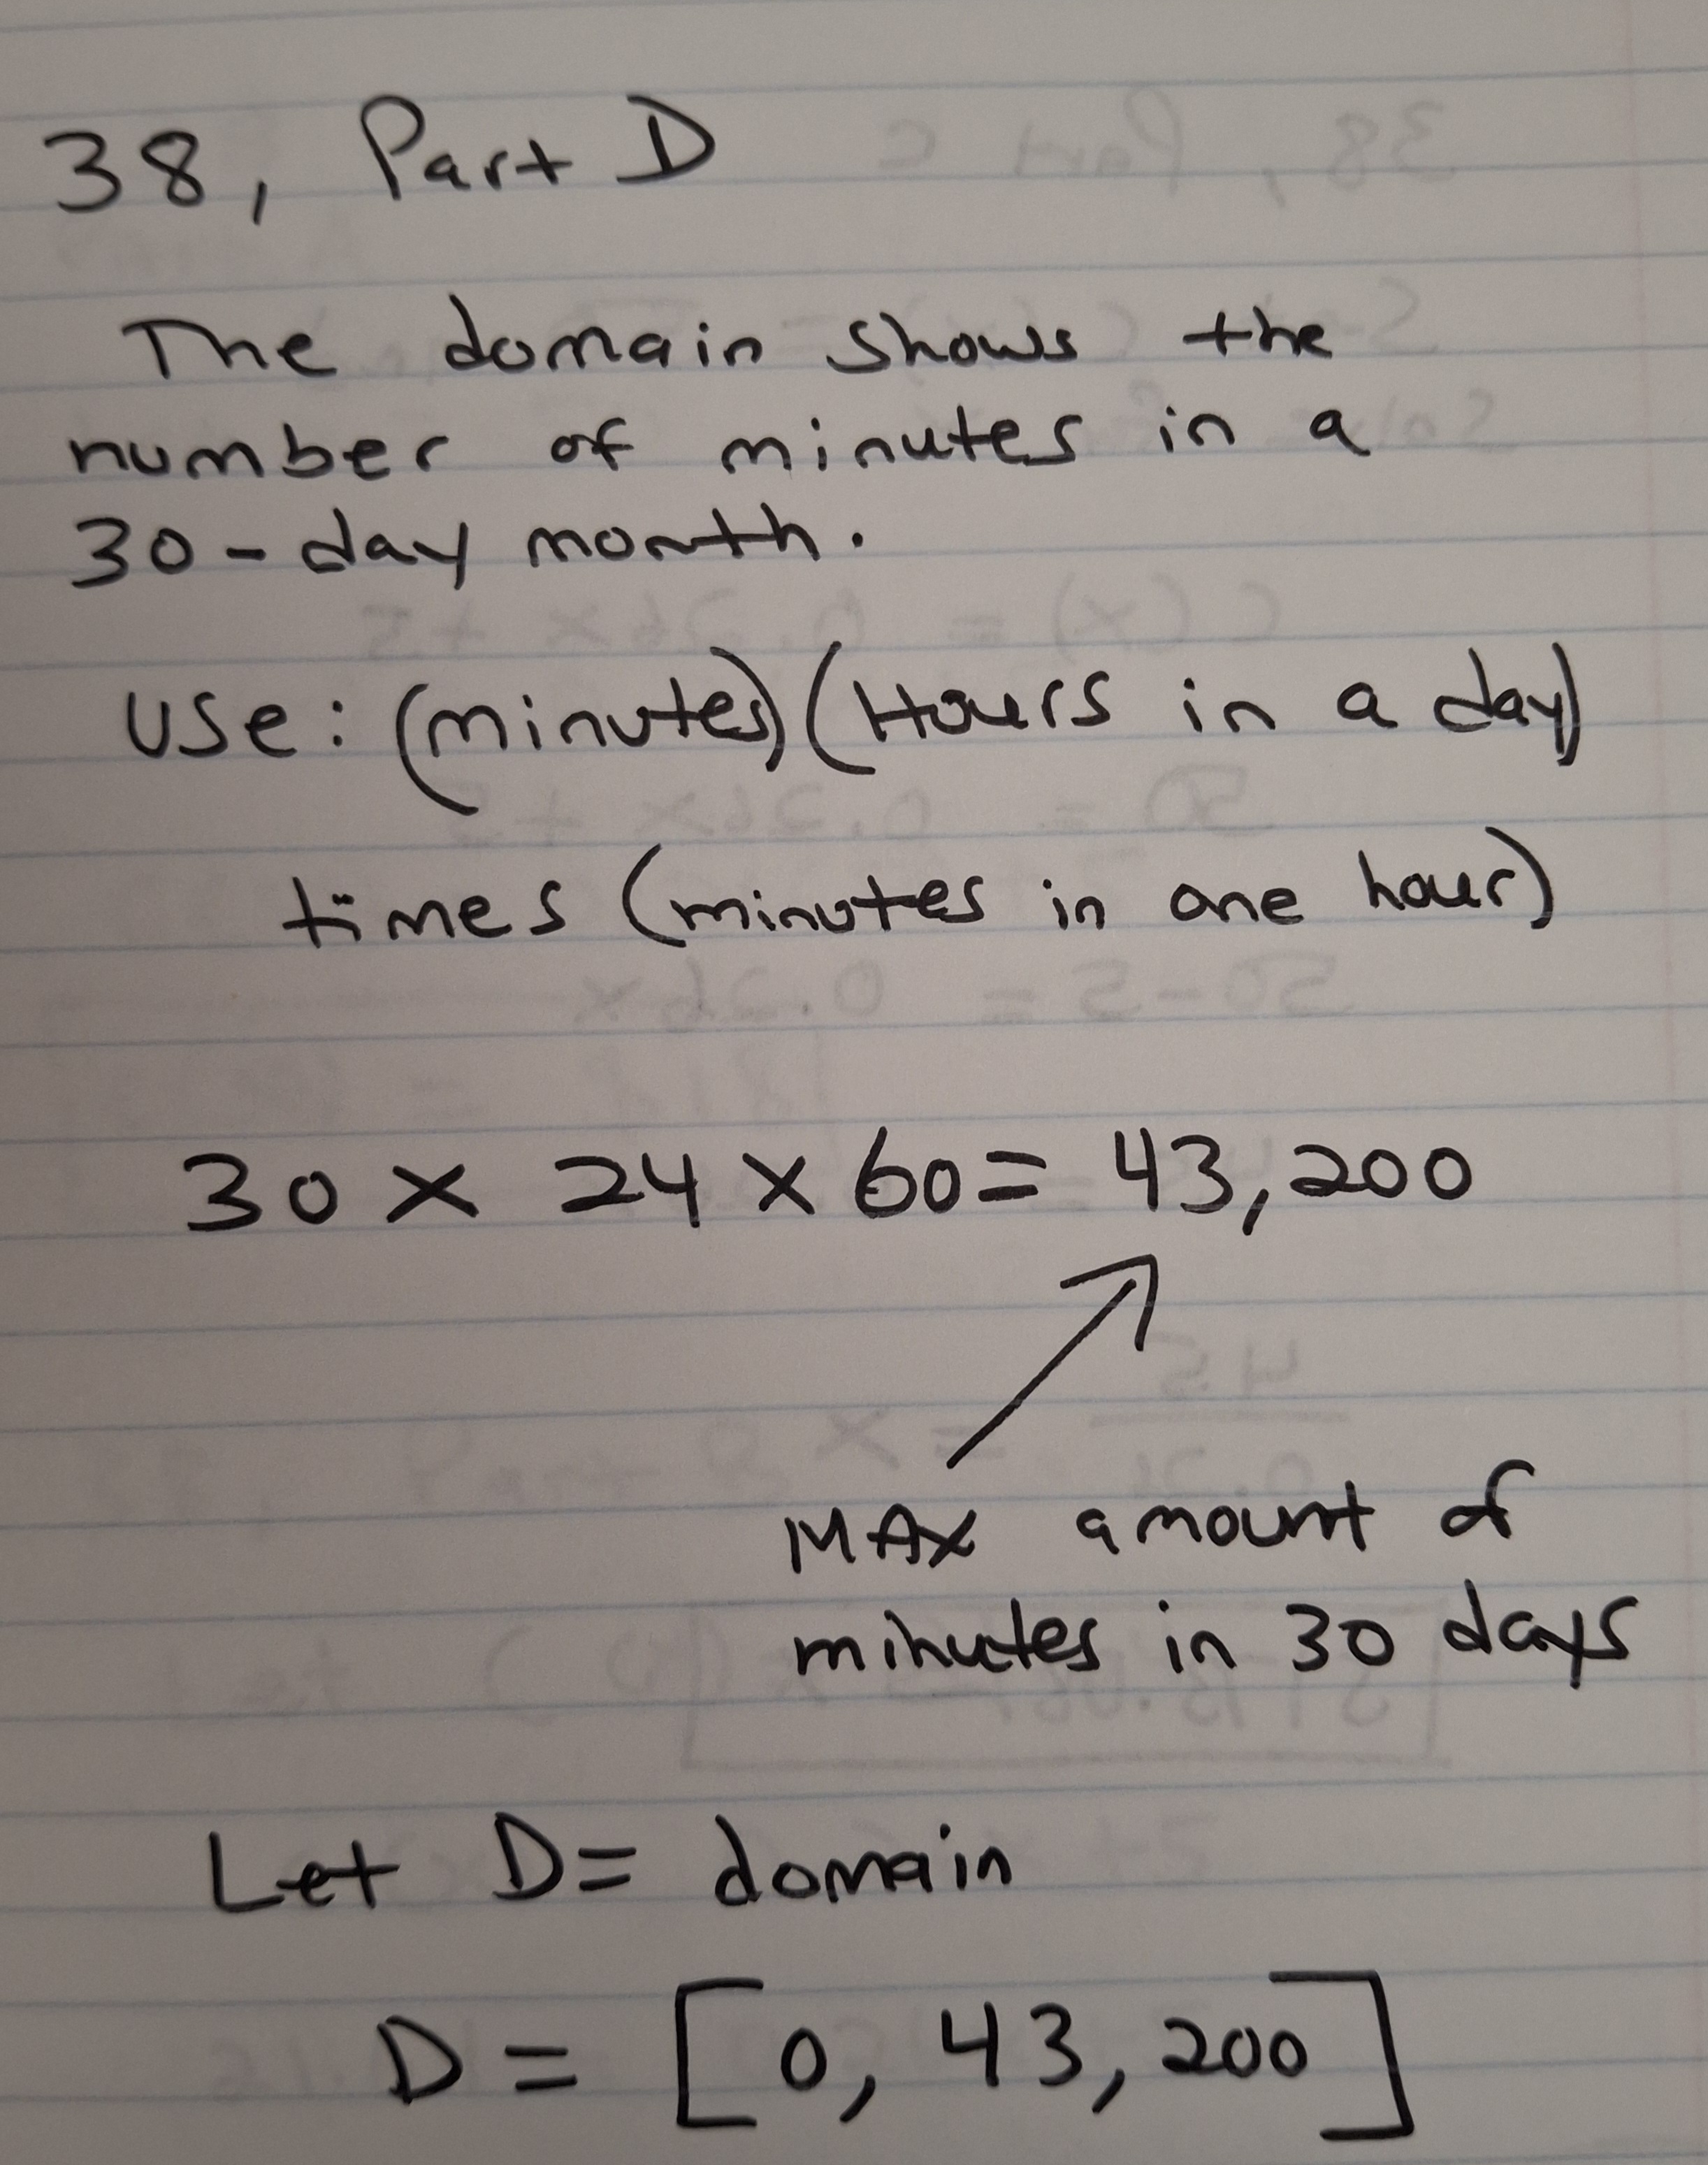 38, Part D
The domain shows the
number of minutes in a
30-day month.
Use: (minutes)(Hours in a day)
times (minutes in one hour)
30 x 24 x 60 = 43,200
MAX amount of
minutes in 30 days
Let D = domain
D = [0, 43,200]